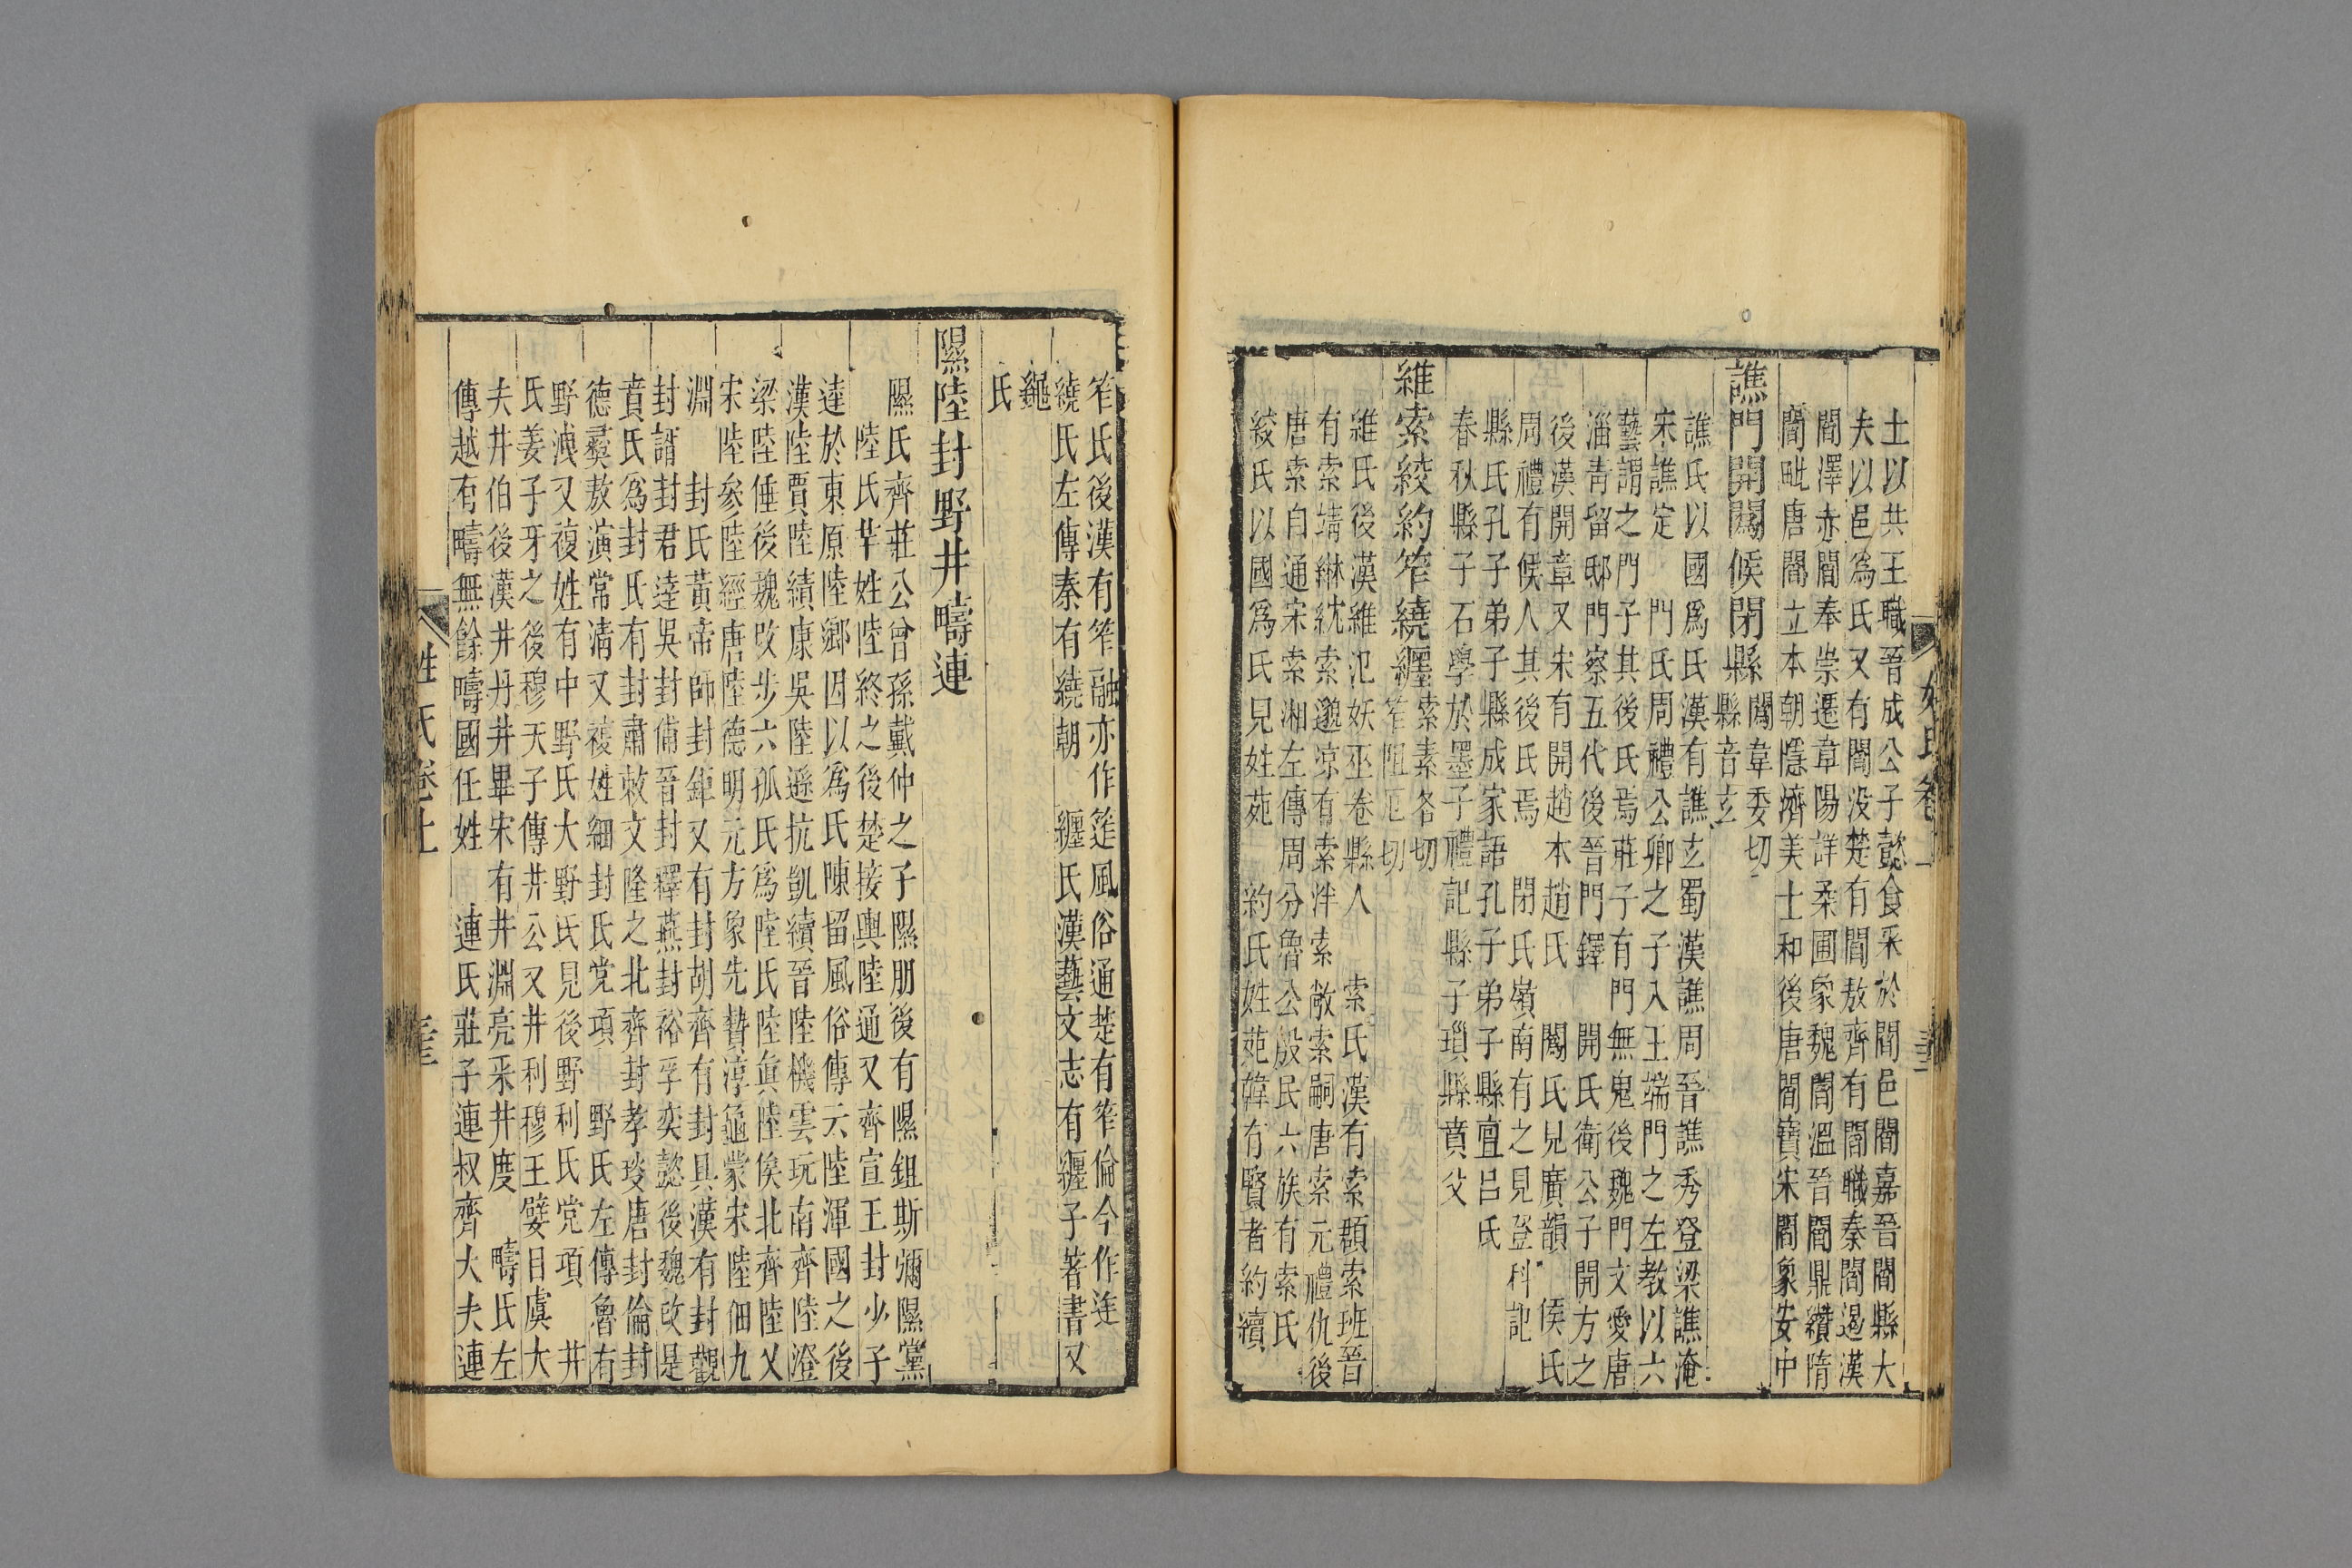 土以共王職晉成公子懿食采於閻邑閻嘉晉閻縣大
夫以邑為氏又有閻没楚有閻敖齊有閻職秦閻遏漢
閻澤赤閻奉崇遷章陽詳柔圃象魏閻溫晉閻鼎纘隋
閻毗唐閻立本朝隱濟美士和後唐閻寶宋閻象安中
譙門開闖候閉縣
闖韋委切
縣音玄
譙氏以國為氏漢有譙玄蜀漢譙周晉譙秀登梁譙淹
宋譙定 門氏周禮公卿之子入王端門之左教以六
藝謂之門子其後氏焉莊子有門無鬼後魏門文愛唐
淄青留邸門察五代後晉門鐸 開氏衛公子開方之
後漢開章又宋有開趙本趙氏 闖氏見廣韻 候氏
周禮有候人其後氏焉 閉氏嶺南有之見登科記
縣氏孔子弟子縣成家語孔子弟子縣亶呂氏
春秋縣子石學於墨子禮記縣子瑣縣賁父
維索綾約筰繞纏
索素各切
筰阻厄切
維氏後漢維氾妖巫卷縣人 索氏漢有索頵索班晉
有索靖綝紞索邈涼有索泮索敞索嗣唐索元禮仇後
唐索自通宋索湘左傳周分魯公殷民六族有索氏
綾氏以國為氏見姓苑 約氏姓苑韓有賢者約續
筰氏後漢有筰融亦作筵風俗通楚有筰倫今作迮
繞氏左傳秦有繞朝 纏氏漢藝文志有纏子著書又
氏
隰陸封野井疇連
隰氏齊莊公曾孫戴仲之子隰朋後有隰鉏斯彌隰黨
陸氏芈姓陸終之後楚接輿陸通又齊宣王封少子
達於東原陸鄉因以為氏陳留風俗傳云陸渾國之後
漢陸賈陸績康吳陸遜抗凱續晉陸機雲玩南齊陸澄
梁陸倕後魏改步六孤氏為陸氏陸眞陸俟北齊陸乂
宋陸參陸經唐陸德明元方象先贄淳龜蒙宋陸佃九
淵 封氏黃帝師封鉅又有封胡齊有封具漢有封觀
封諝封君達吳封俌晉封釋燕封裕孚奕懿後魏改是
賁氏為封氏有封肅敕文隆之北齊封孝琰唐封倫封
德彝敖演常清又複姓細封氏党項 野氏左傳魯有
野洩又複姓有中野氏大野氏見後野利氏党項 井
氏姜子牙之後穆天子傳井公又井利穆王嬖日虞大
夫井伯後漢井丹井畢宋有井淵亮采井度 疇氏左
傳越有疇無餘疇國任姓 連氏莊子連叔齊大夫連
姓氏卷十